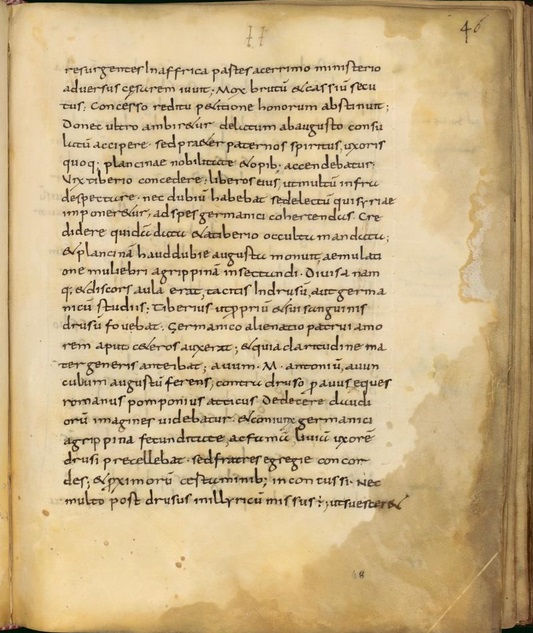 77
46
resurgentes Inaffrica partes acerrimo ministerio
adversus cesarem iuuit; Mox brutū & cassiū secu
tus; Concesso reditu petitione honorum abstinuit;
Donec ultro ambiretur delatum abaugusto consu
latū accipere · sed praeter paternos spiritus, uxoris
quoq; plancinae nobilitate & opib; accendebatur
Vix tiberio concedere · liberos eius, ut multū infra
despectare · nec dubiū habebat se delectū qui syriae
imponeretur, ad spes germanici cohercendas · Cre
didere quidā data & atiberio occulta mandata;
& plancinā haud dubie augusta monuit, aemulati
one muliebri agrippinā insectandi · Diuisa nam
q; & discors aula erat, tacitis In drusū, aut germa
nicū studiis; Tiberius ut ppriū & sui sanguinis
drusū fouebat · Germanico alienatio patrui amo
rem aput ceteros auxerat; & quia claritudine ma
terni generis anteibat; auum · M · antoniū, auun
culum augustū ferens; contra druso pauus eques
romanus pomponius atticus Dedecere claudi
orū imagines uidebatur · & coniunx germanici
agrippina fecunditate, ac famā liuiā uxorē
drusi precellebat · sed fratres egregie concor
des; & pximorū certaminib; inconcussi · Nec
multo post drusus inillyricū missus ÷, ut suesceret